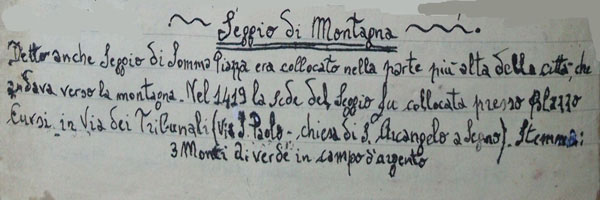 Seggio di Montagna
Detto anche Seggio di Somma Piazza era collocato nella parte più alta della città, che
andava verso la montagna. Nel 1419 la sede del Seggio fu collocata presso Palazzo
Cursi in Via dei Tribunali (Via S. Paolo - chiesa di S. Arcangelo a Segno). Stemma:
3 Monti di verde in campo d'argento